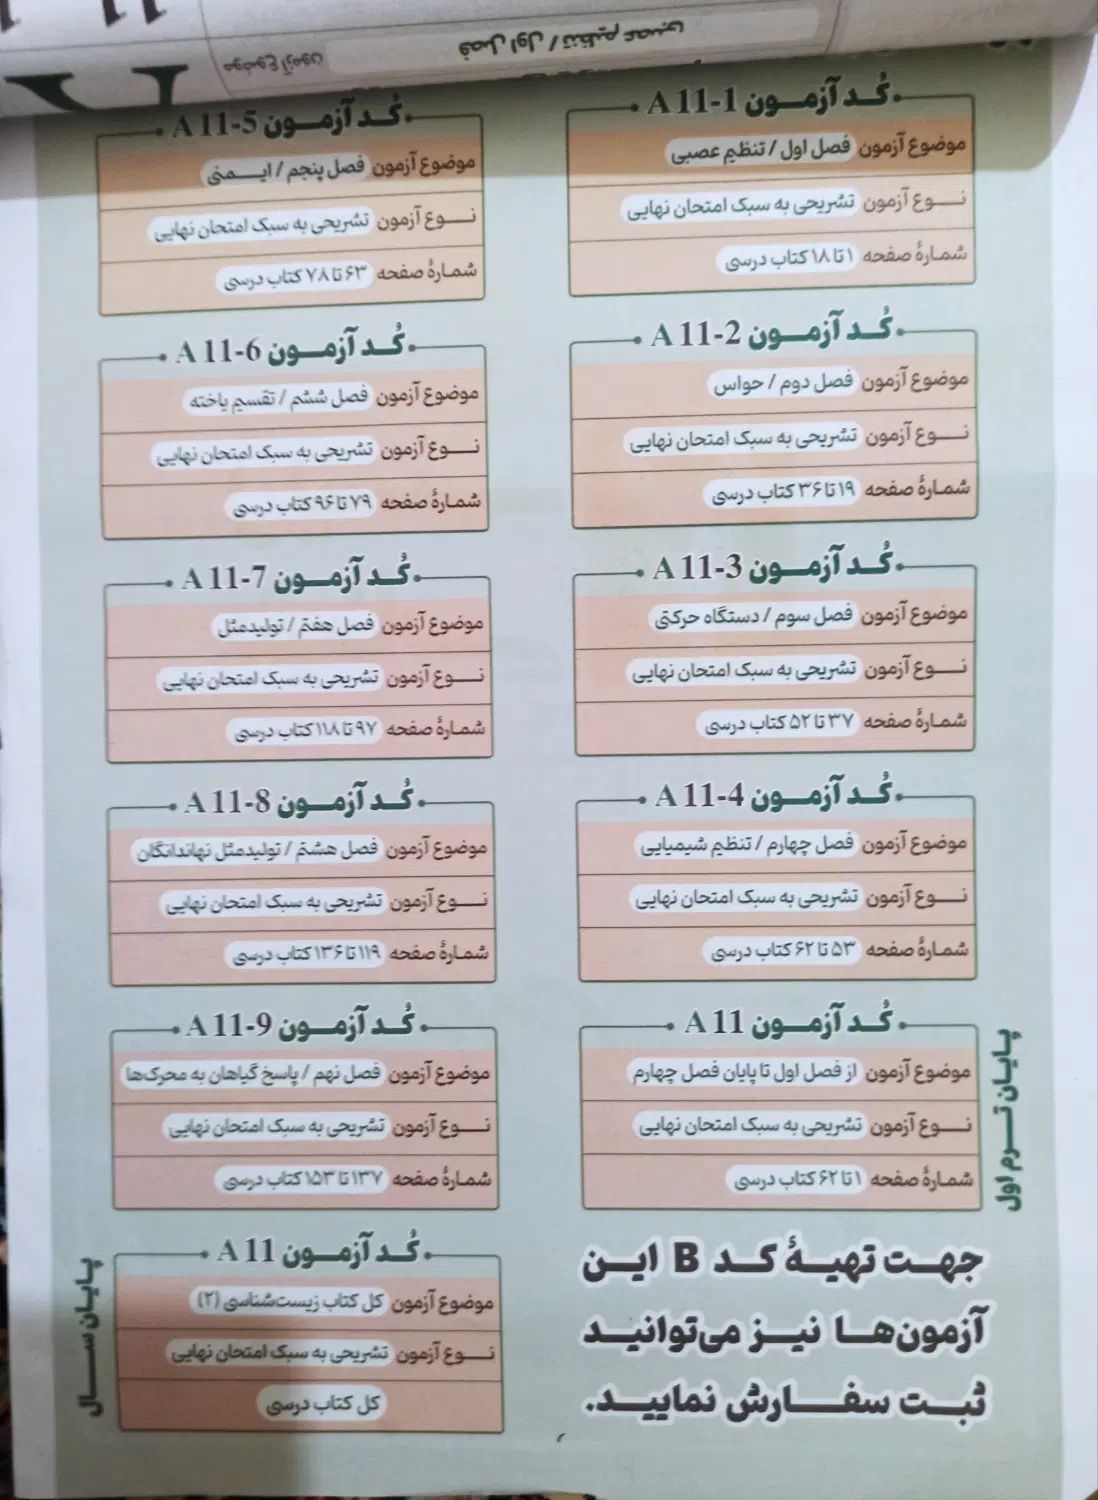 فصل اول / تنظیم عصبی
موضوع آزمون
کُد آزمون A 11-1
موضوع آزمون فصل اول / تنظیم عصبی
نوع آزمون تشریحی به سبک امتحان نهایی
شمارهٔ صفحه ۱ تا ۱۸ کتاب درسی
کُد آزمون A 11-2
موضوع آزمون فصل دوم / حواس
نوع آزمون تشریحی به سبک امتحان نهایی
شمارهٔ صفحه ۱۹ تا ۳۶ کتاب درسی
کُد آزمون A 11-3
موضوع آزمون فصل سوم / دستگاه حرکتی
نوع آزمون تشریحی به سبک امتحان نهایی
شمارهٔ صفحه ۳۷ تا ۵۲ کتاب درسی
کُد آزمون A 11-4
موضوع آزمون فصل چهارم / تنظیم شیمیایی
نوع آزمون تشریحی به سبک امتحان نهایی
شمارهٔ صفحه ۵۳ تا ۶۲ کتاب درسی
پایان ترم اول
کُد آزمون A 11
موضوع آزمون از فصل اول تا پایان فصل چهارم
نوع آزمون تشریحی به سبک امتحان نهایی
شمارهٔ صفحه ۱ تا ۶۲ کتاب درسی
جهت تهیهٔ کد B این
آزمون‌ها نیز می‌توانید
ثبت سفارش نمایید.
کُد آزمون A 11-5
موضوع آزمون فصل پنجم / ایمنی
نوع آزمون تشریحی به سبک امتحان نهایی
شمارهٔ صفحه ۶۳ تا ۷۸ کتاب درسی
کُد آزمون A 11-6
موضوع آزمون فصل ششم / تقسیم یاخته
نوع آزمون تشریحی به سبک امتحان نهایی
شمارهٔ صفحه ۷۹ تا ۹۶ کتاب درسی
کُد آزمون A 11-7
موضوع آزمون فصل هفتم / تولیدمثل
نوع آزمون تشریحی به سبک امتحان نهایی
شمارهٔ صفحه ۹۷ تا ۱۱۸ کتاب درسی
کُد آزمون A 11-8
موضوع آزمون فصل هشتم / تولیدمثل نهاندانگان
نوع آزمون تشریحی به سبک امتحان نهایی
شمارهٔ صفحه ۱۱۹ تا ۱۳۶ کتاب درسی
کُد آزمون A 11-9
موضوع آزمون فصل نهم / پاسخ گیاهان به محرک‌ها
نوع آزمون تشریحی به سبک امتحان نهایی
شمارهٔ صفحه ۱۳۷ تا ۱۵۳ کتاب درسی
کُد آزمون A 11
موضوع آزمون کل کتاب زیست‌شناسی (۲)
نوع آزمون تشریحی به سبک امتحان نهایی
کل کتاب درسی
پایان سال